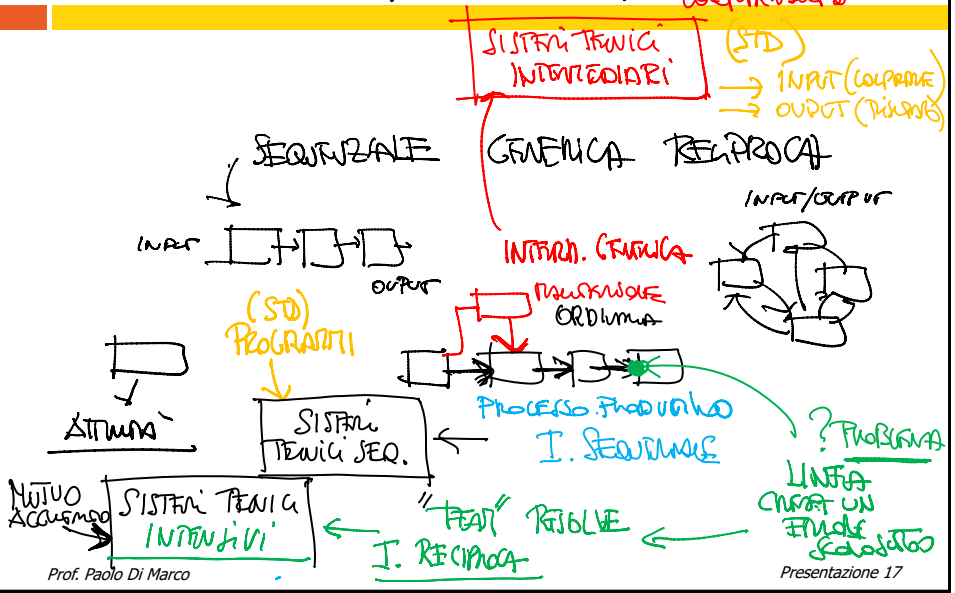 SISTEMI TECNICI
INTERMEDIARI
(STD)
→ INPUT (COMPRARE)
→ OUPUT
SEQUENZIALE GENERICA RECIPROCA
INPUT/OUTPUT
INPUT
OUPUT
INTERD. GENERICA
MANUTENZIONE
ORDINARIA
(STD)
PROGRAMMI
ATTIVITÀ
SISTEMI
TECNICI SEQ.
PROCESSO PRODUTTIVO
I. SEQUENZIALE
? PROBLEMA
LINEA
CREA UN
ERRORE
SCONOSCIUTO
MUTUO
SISTEMI TECNICI
INTENSIVI
"TEAM" RISOLVE
I. RECIPROCA
Prof. Paolo Di Marco
Presentazione 17